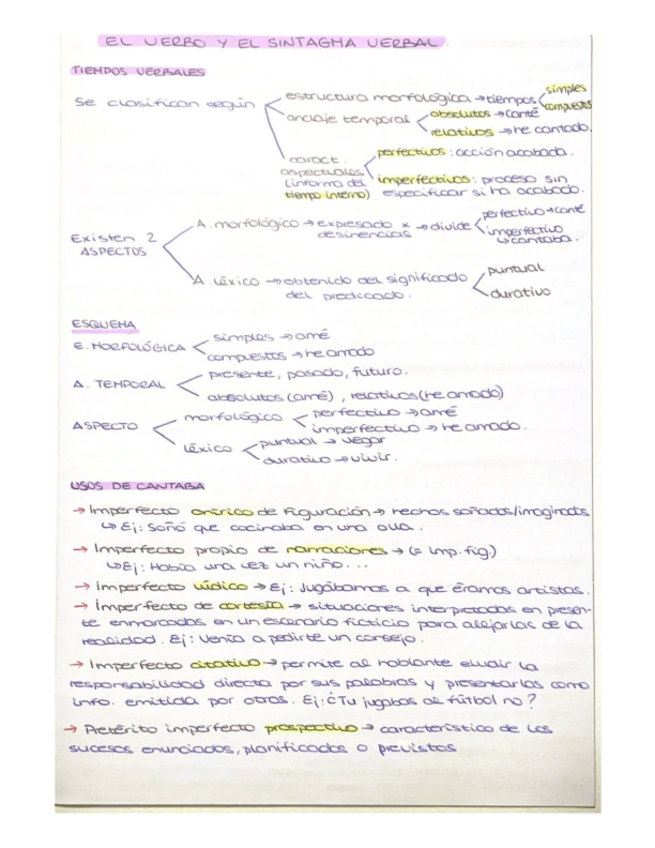 EL VERBO Y EL SINTAGMA VERBAL.
TIEMPOS VERBALES
Se clasifican según
estructura morfológica → tiempos
simples
compuestos
anclaje temporal
absolutos → canté
relativos → he cantado.
caract. aspectuales
(informa del
tiempo interno)
perfectivos: acción acabada.
imperfectivos: proceso sin
especificar si ha acabado.
Existen 2
ASPECTOS
A. morfológico → expresado x → divide
desinencias
perfectivo → canté
imperfectivo
↳ cantaba.
A. léxico → obtenido del significado
del predicado.
puntual
durativo
ESQUEMA
E. MORFOLÓGICA
simples → amé
compuestos → he amado
A. TEMPORAL
presente, pasado, futuro.
absolutos (amé), relativos (he amado)
ASPECTO
morfológico
perfectivo → amé
imperfectivo → he amado.
léxico
puntual → llegar
durativo → vivir.
USOS DE CANTABA
→ Imperfecto onírico de figuración → hechos soñados/imaginados
↳ Ej: Soñó que cocinaba en una olla.
→ Imperfecto propio de narraciones → (= imp. fig.)
↳ Ej: Había una vez un niño...
→ Imperfecto lúdico → Ej: Jugábamos a que éramos artistas.
→ Imperfecto de cortesía → situaciones interpretadas en presen-
te enmarcadas en un escenario ficticio para alejarlas de la
realidad. Ej: Venía a pedirte un consejo.
→ Imperfecto citativo → permite al hablante eludir la
responsabilidad directa por sus palabras y presentarlas como
info. emitida por otros. Ej: ¿Tu jugabas al fútbol no?
→ Pretérito imperfecto prospectivo → característico de los
sucesos enunciados, planificados o previstos